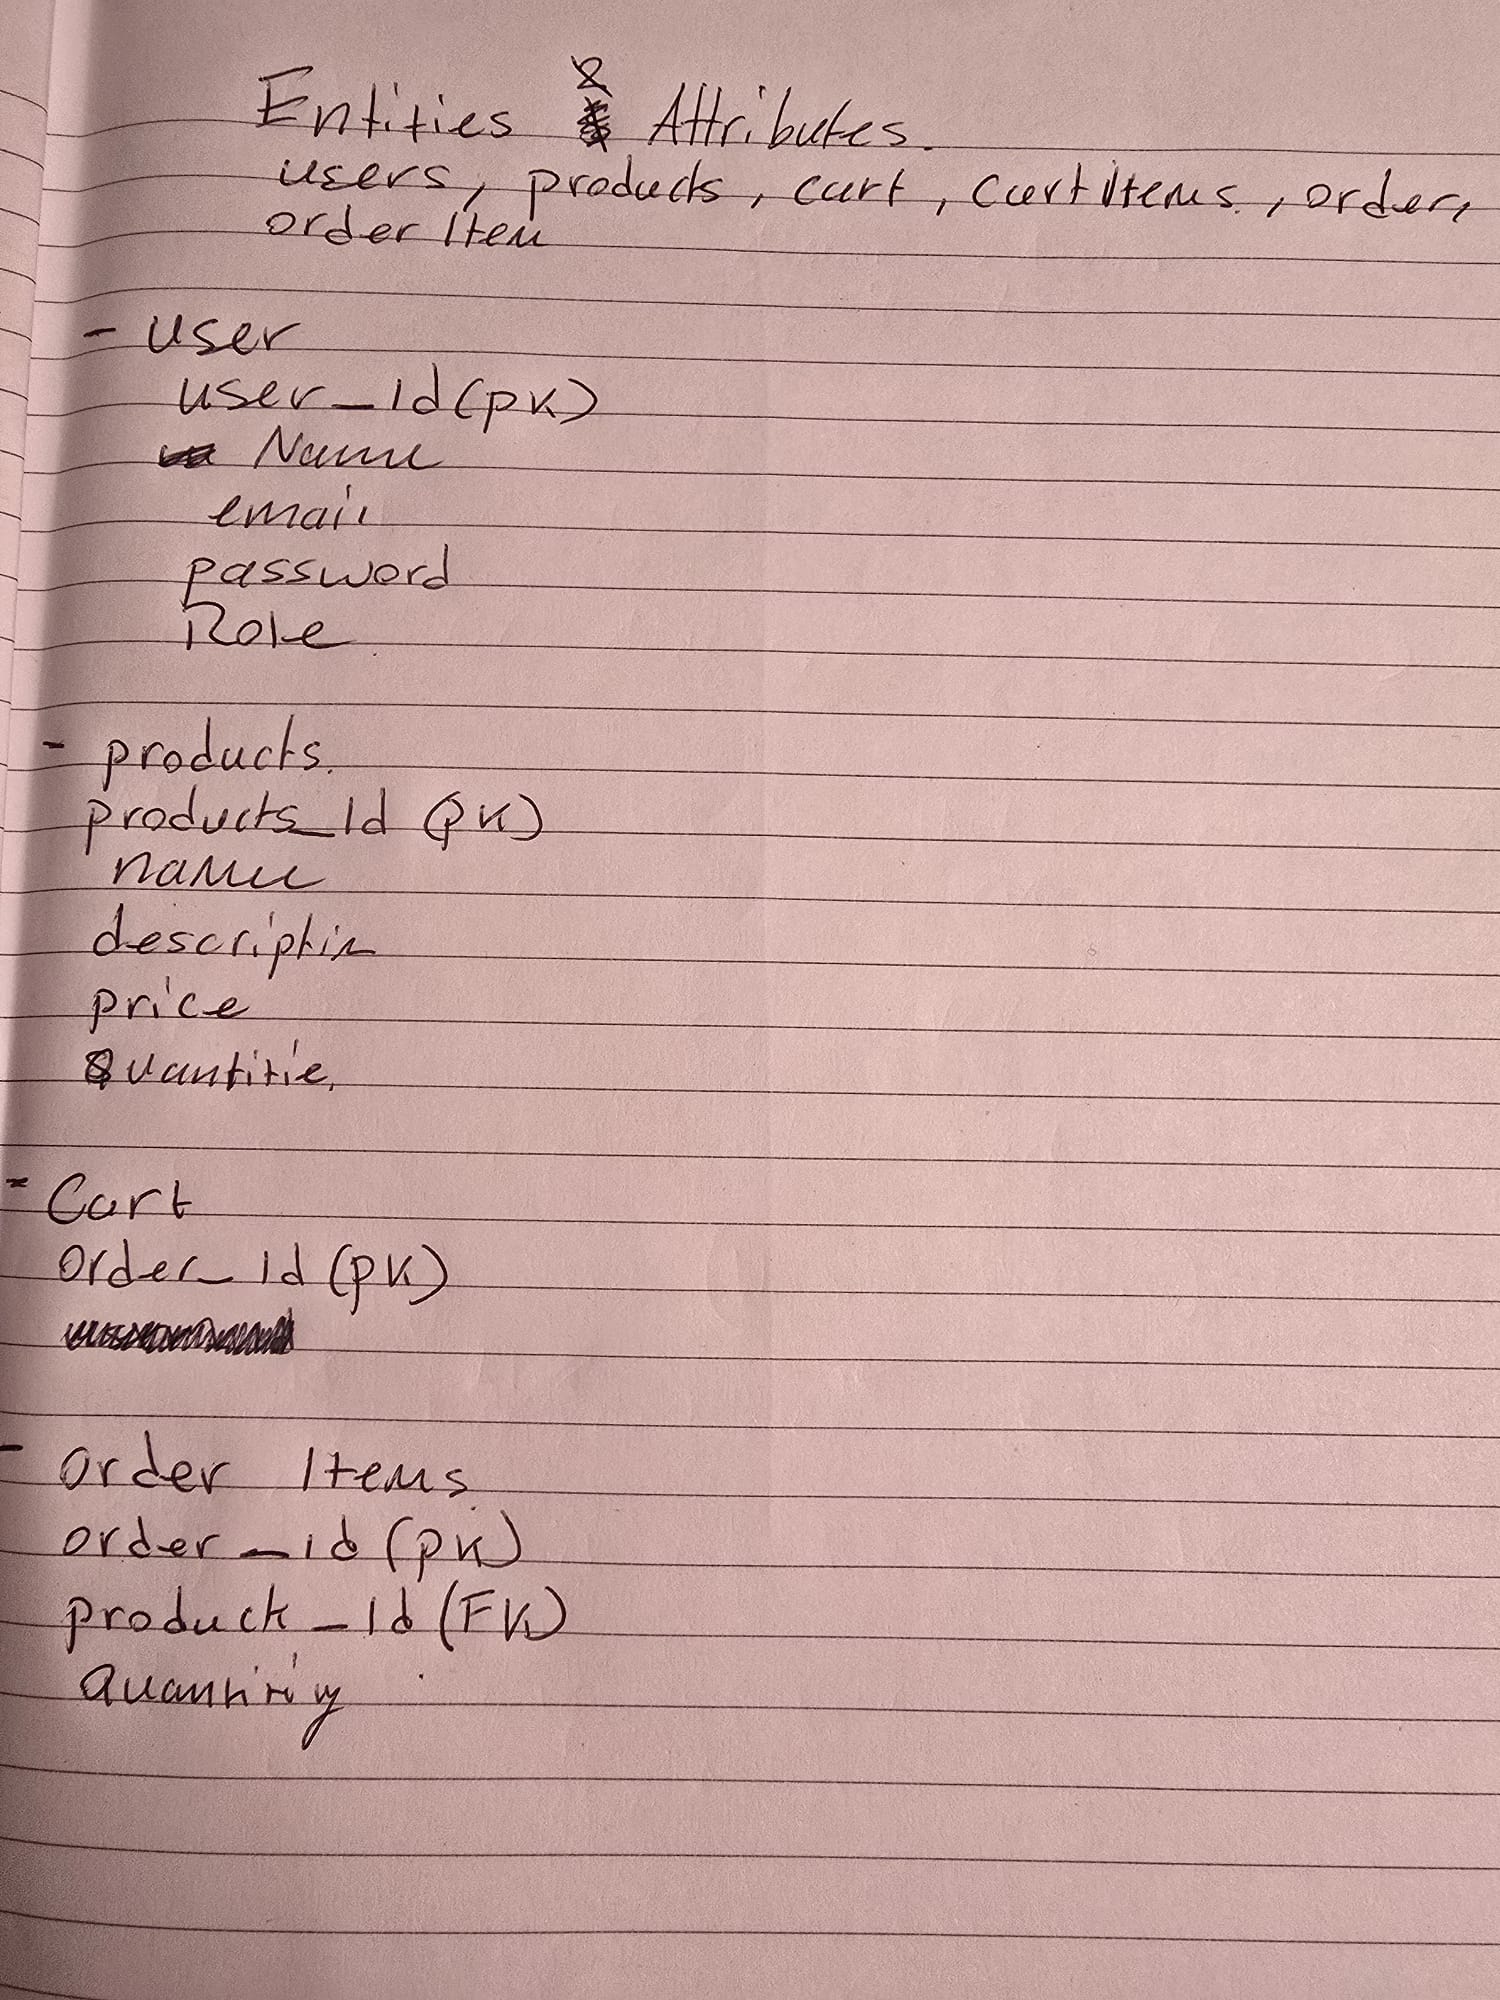 Entities & Attributes.
users, products, cart, Cart Items, order,
order Item
- user
user_Id (pk)
Name
email
password
Role
- products.
products_Id (pk)
name
descriptin
price
Quantitie.
- Cart
order_Id (pk)
- order Items
order_id (pk)
product_Id (FK)
Quantitiy